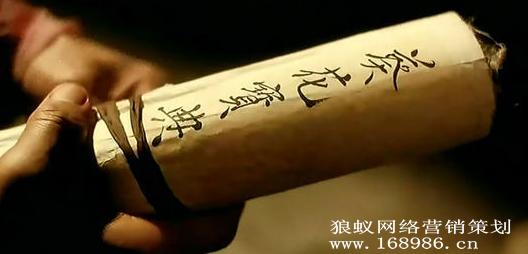 葵花寳典
狼蚁网络营销策划
www.168986.cn